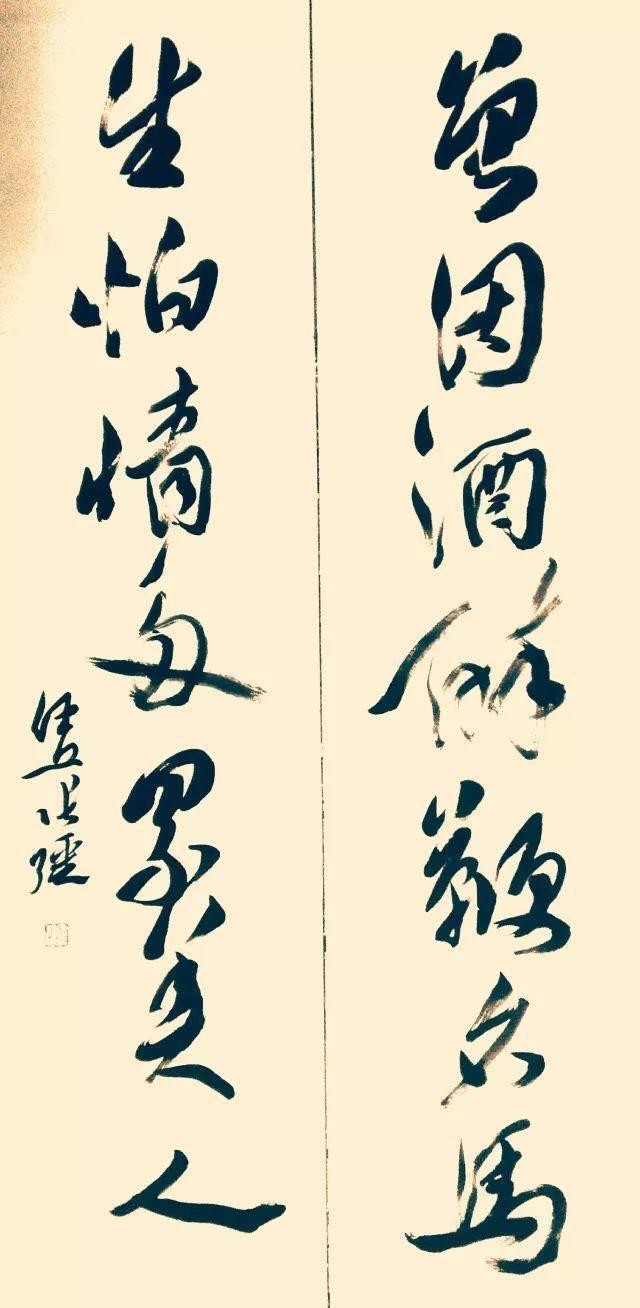 曾因酒鞭名馬
生怕情多累美人